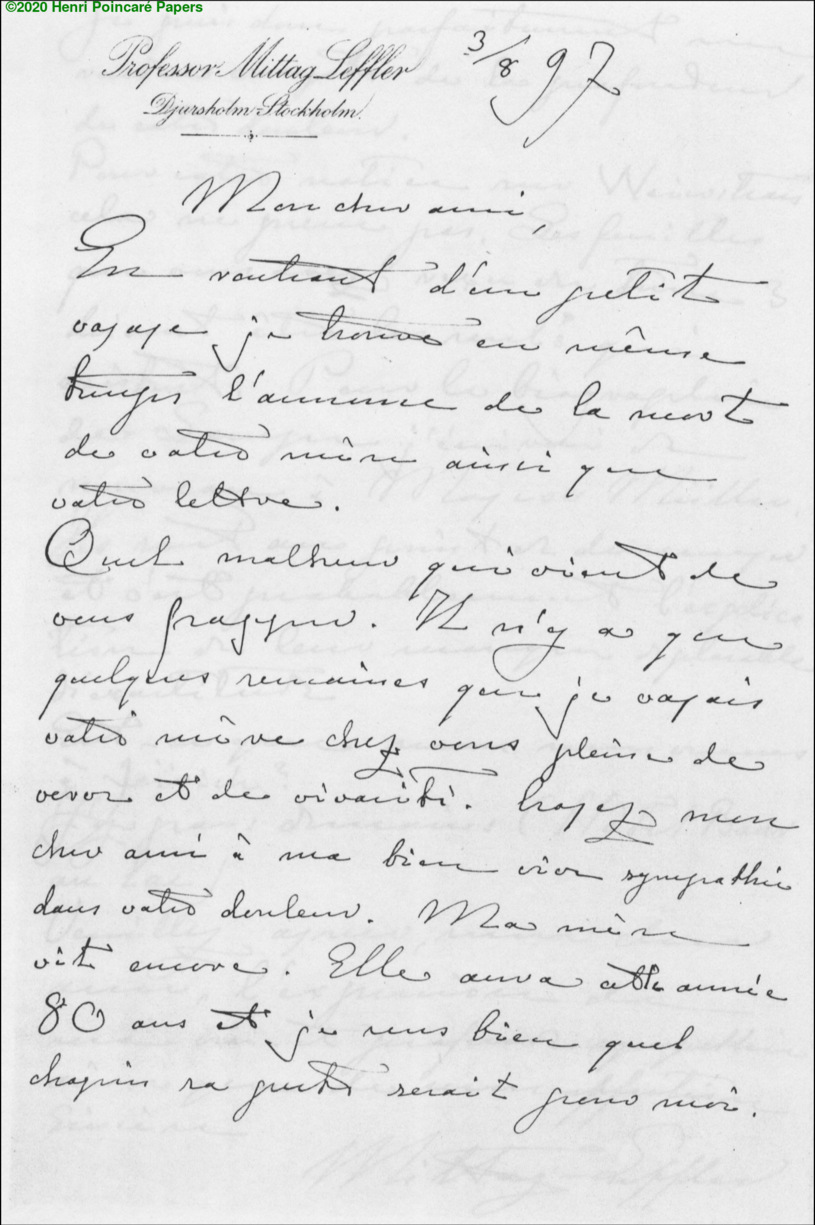 ©2020 Henri Poincaré Papers
Professor Mittag-Leffler
Djursholm-Stockholm.
3/8 97
Mon cher ami,
En rentrant d'un petit
voyage je trouve en même
temps l'annonce de la mort
de votre mère ainsi que
votre lettre.
Quel malheur qui vient de
vous frapper. Il n'y a que
quelques semaines que je voyais
votre mère chez vous pleine de
verve et de vivacité. Croyez mon
cher ami à ma bien vive sympathie
dans votre douleur. Ma mère
vit encore. Elle aura cette année
80 ans et je sens bien quel
chagrin sa perte serait pour moi.